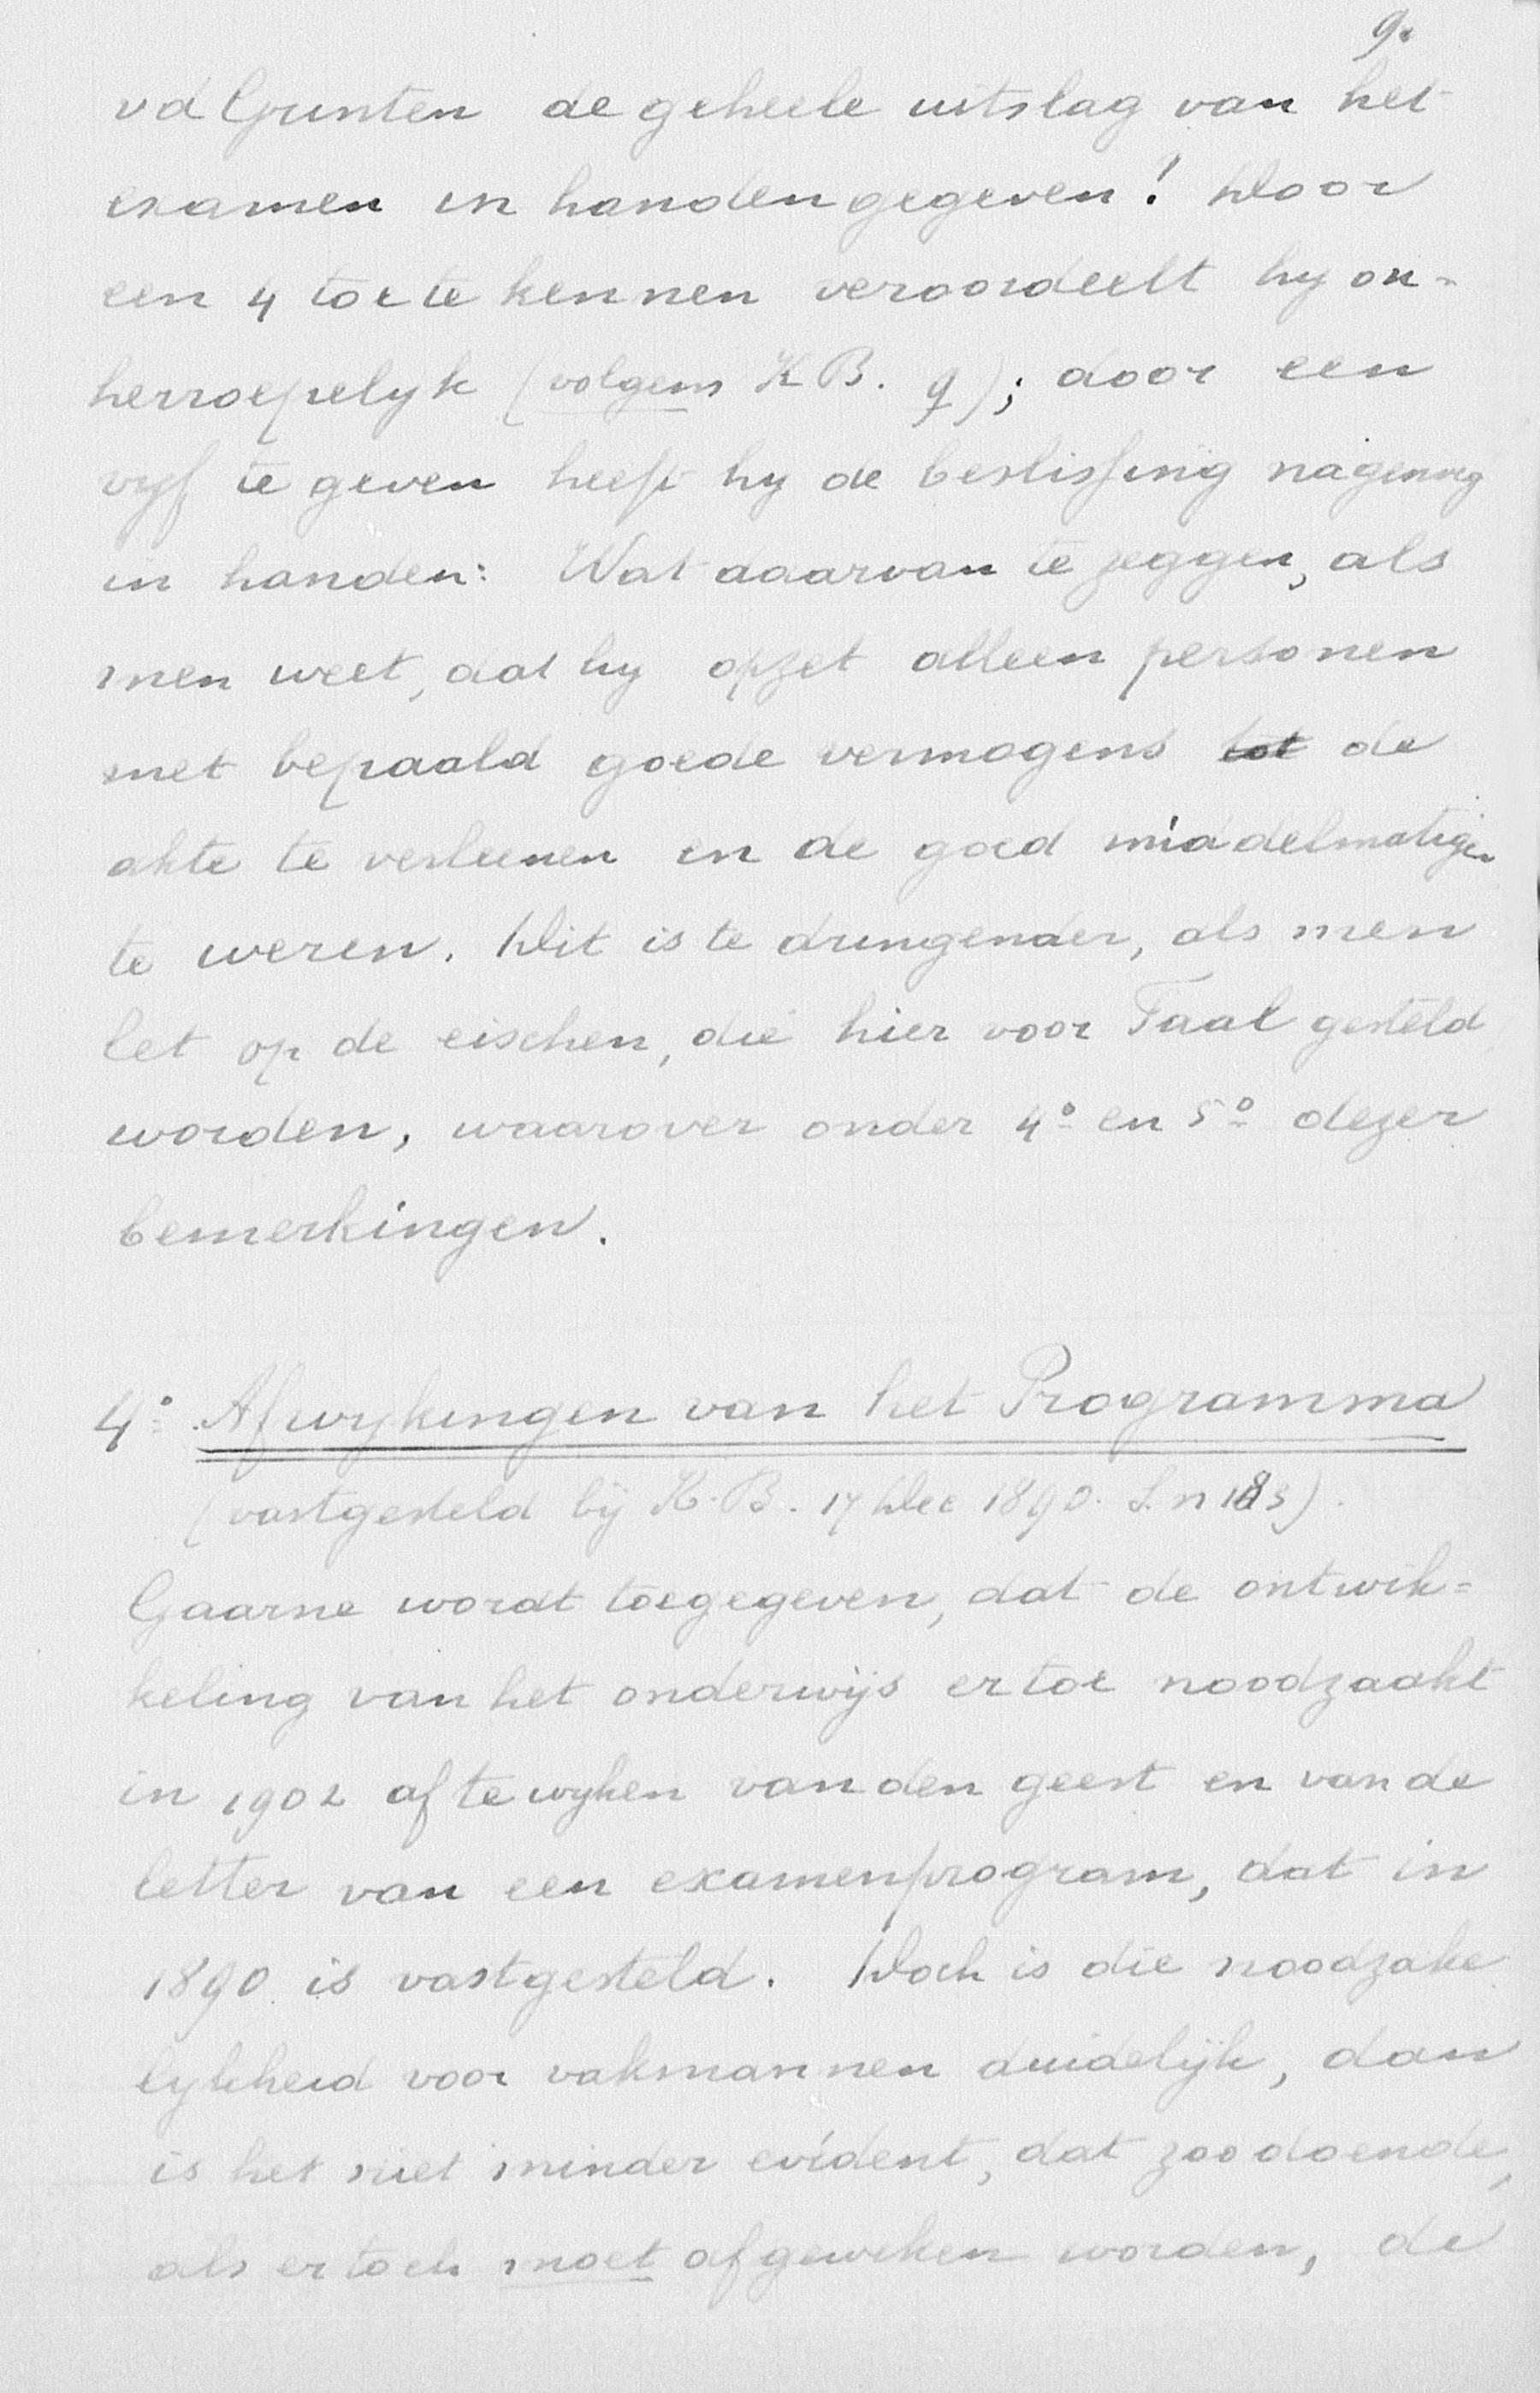 9.
vd Gunten de geheele uitslag van het
examen in handen gegeven! Door
een 4 toe te kennen veroordeelt hy on-
herroepelyk (volgens K B. 9); door een
vyf te geven heeft hy de beslissing nagenoeg
in handen: Wat daarvan te zeggen, als
men weet, dat hy opzet alleen personen
met bepaald goede vermogens tot de
akte te verleenen en de goed middelmatigen
te weren. Dit is te dringender, als men
let op de eischen, die hier voor Taal gesteld
worden, waarover onder 4o en 5o dezer
bemerkingen.
4o Afwykingen van het Programma
(vastgesteld bij K. B. 17 Dec 1890. S. n 183).
Gaarne wordt toegegeven, dat de ontwik=
keling van het onderwijs er toe noodzaakt
in 1902 af te wyken van den geest en van de
letter van een examenprogram, dat in
1890 is vastgesteld. Doch is die noodzake
lykheid voor vakmannen duidelijk, dan
is het niet minder evident, dat zoodoende,
als er toch moet afgeweken worden, de